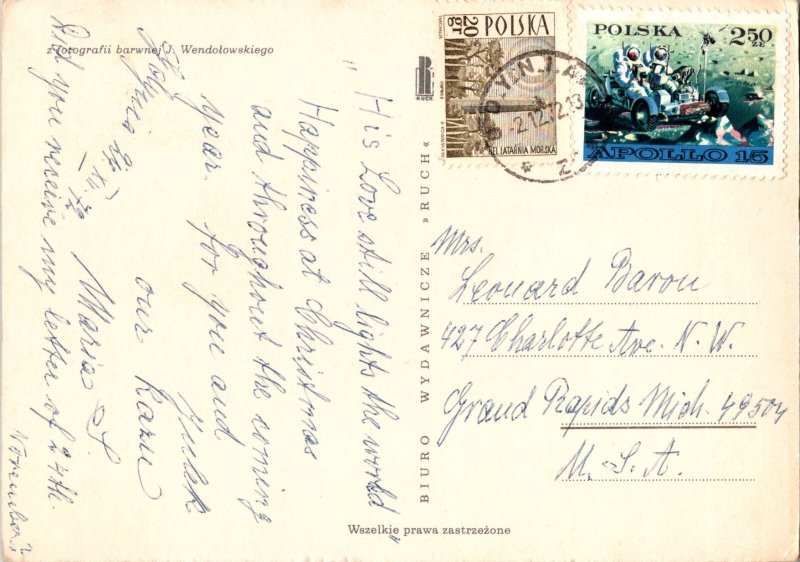 z fotografii barwnej J. Wendołowskiego
" His Love still lights the world "
Happiness at Christmas
and throughout the coming
year for you and
Julek
our Kazu
Maria S
Gdynia
XII 72
Did you receive my letter of 24th
November?
BIURO WYDAWNICZE »RUCH«
RUCH
20 gr
POLSKA
HEL LATARNIA MORSKA
GDYNIA
-2.12.72.13
POLSKA 2,50 ZŁ
APOLLO 15
Mrs.
Leonard Baron
427 Charlotte Ave. N. W.
Grand Rapids Mich. 49504
U. S. A.
Wszelkie prawa zastrzeżone